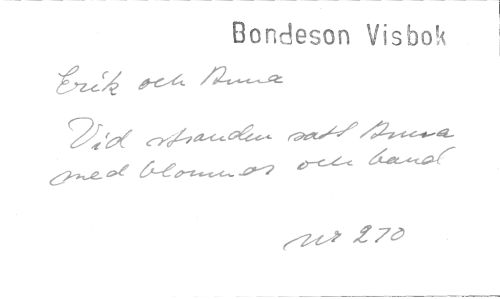 Bondeson Visbok
Erik och Anna
Vid stranden satt Anna
med blommor och band
nr 270